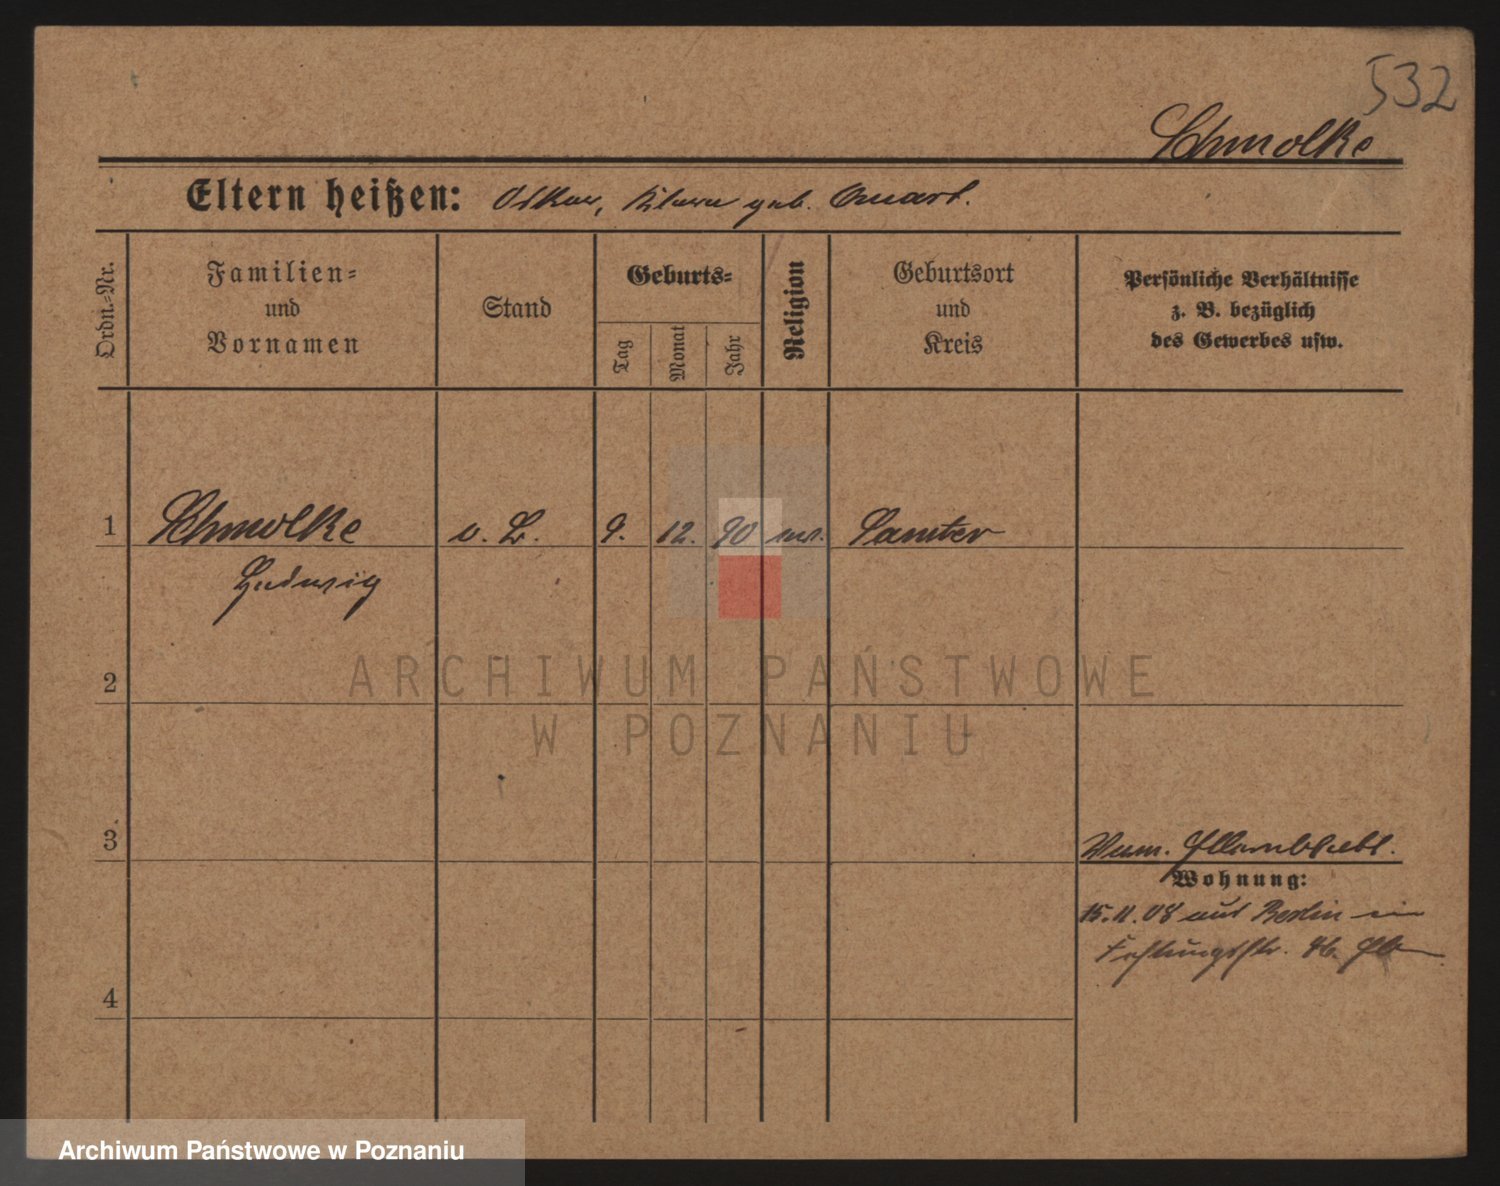 532
Schmolke
Eltern heißen: Oskar, Klara geb. Quast.
Ordn.=Nr.
Familien=
und
Vornamen
Stand
Geburts=
Tag
Monat
Jahr
Religion
Geburtsort
und
Kreis
Persönliche Verhältnisse
z. B. bezüglich
des Gewerbes usw.
1 Schmolke o. B. 9. 12. 90 Samter
Ludwig
ARCHIWUM PAŃSTWOWE
2
W POZNANIU
3
Wohnung:
15. 11. 08 aus Berlin
Festungsstr.
4
Archiwum Państwowe w Poznaniu